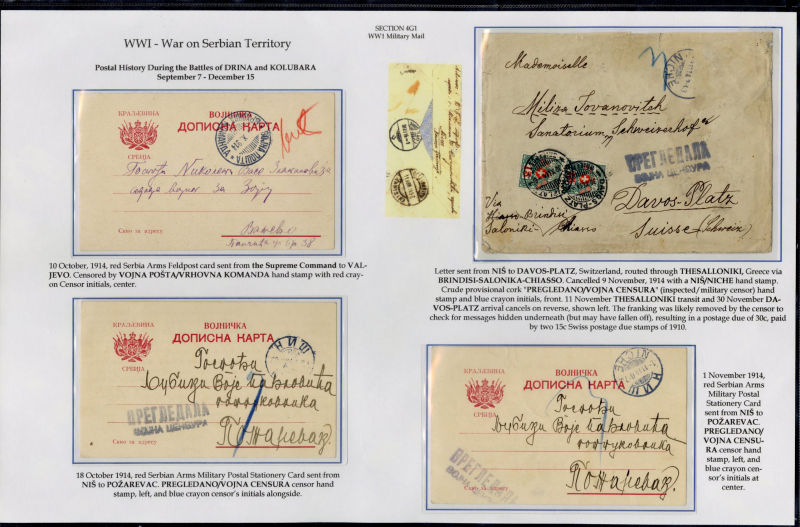 WWI - War on Serbian Territory
SECTION 4G1
WW1 Military Mail
Postal History During the Battles of DRINA and KOLUBARA
September 7 - December 15
КРАЉЕВИНА
СРБИЈА
ВОЈНИЧКА
ДОПИСНА КАРТА
Само за адресу
Ваљево
10 October, 1914, red Serbia Arms Feldpost card sent from the Supreme Command to VAL-
JEVO. Censored by VOJNA POŠTA/VRHOVNA KOMANDA hand stamp with red cray-
on Censor initials, center.
Mademoiselle
Miliza Jovanovitch
Sanatorium Schweizerhof
ПРЕГЛЕДАЛА
ВОЈНА ЦЕНЗУРА
Davos-Platz
Via
Brindisi
Saloniki - Chiasso
Suisse (Schweiz)
Letter sent from NIŠ to DAVOS-PLATZ, Switzerland, routed through THESALLONIKI, Greece via
BRINDISI-SALONIKA-CHIASSO. Cancelled 9 November, 1914 with a NIŠ/NICHE hand stamp.
Crude provisional cork "PREGLEDANO/VOJNA CENSURA" (inspected/military censor) hand
stamp and blue crayon initials, front. 11 November THESALLONIKI transit and 30 November DA-
VOS-PLATZ arrival cancels on reverse, shown left. The franking was likely removed by the censor to
check for messages hidden underneath (but may have fallen off), resulting in a postage due of 30c, paid
by two 15c Swiss postage due stamps of 1910.
КРАЉЕВИНА
СРБИЈА
ВОЈНИЧКА
ДОПИСНА КАРТА
НИШ
Госпођи
Љубици Воје
потпуковника
Пожаревац
ПРЕГЛЕДАЛА
ВОЈНА ЦЕНЗУРА
Само за адресу
18 October 1914, red Serbian Arms Military Postal Stationery Card sent from
NIŠ to POŽAREVAC. PREGLEDANO/VOJNA CENSURA censor hand
stamp, left, and blue crayon censor's initials alongside.
КРАЉЕВИНА
СРБИЈА
ВОЈНИЧКА
ДОПИСНА КАРТА
НИШ
NICHE
Госпођи
Љубици Воје
потпуковника
Пожаревац
ПРЕГЛЕДАЛА
Само за адресу
1 November 1914,
red Serbian Arms
Military Postal
Stationery Card
sent from NIŠ to
POŽAREVAC.
PREGLEDANO/
VOJNA CENSU-
RA censor hand
stamp, left, and
blue crayon cen-
sor's initials at
center.